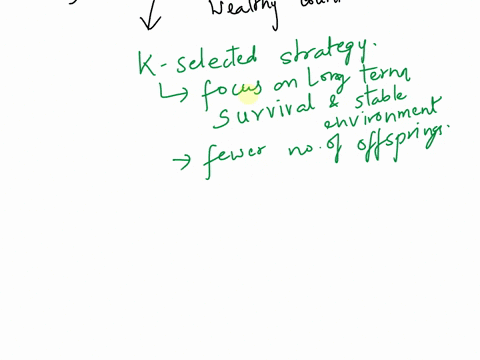 Wealthy
K-selected strategy.
↳ focus on Long term
Survival & stable
environment
→ fewer no. of offsprings.